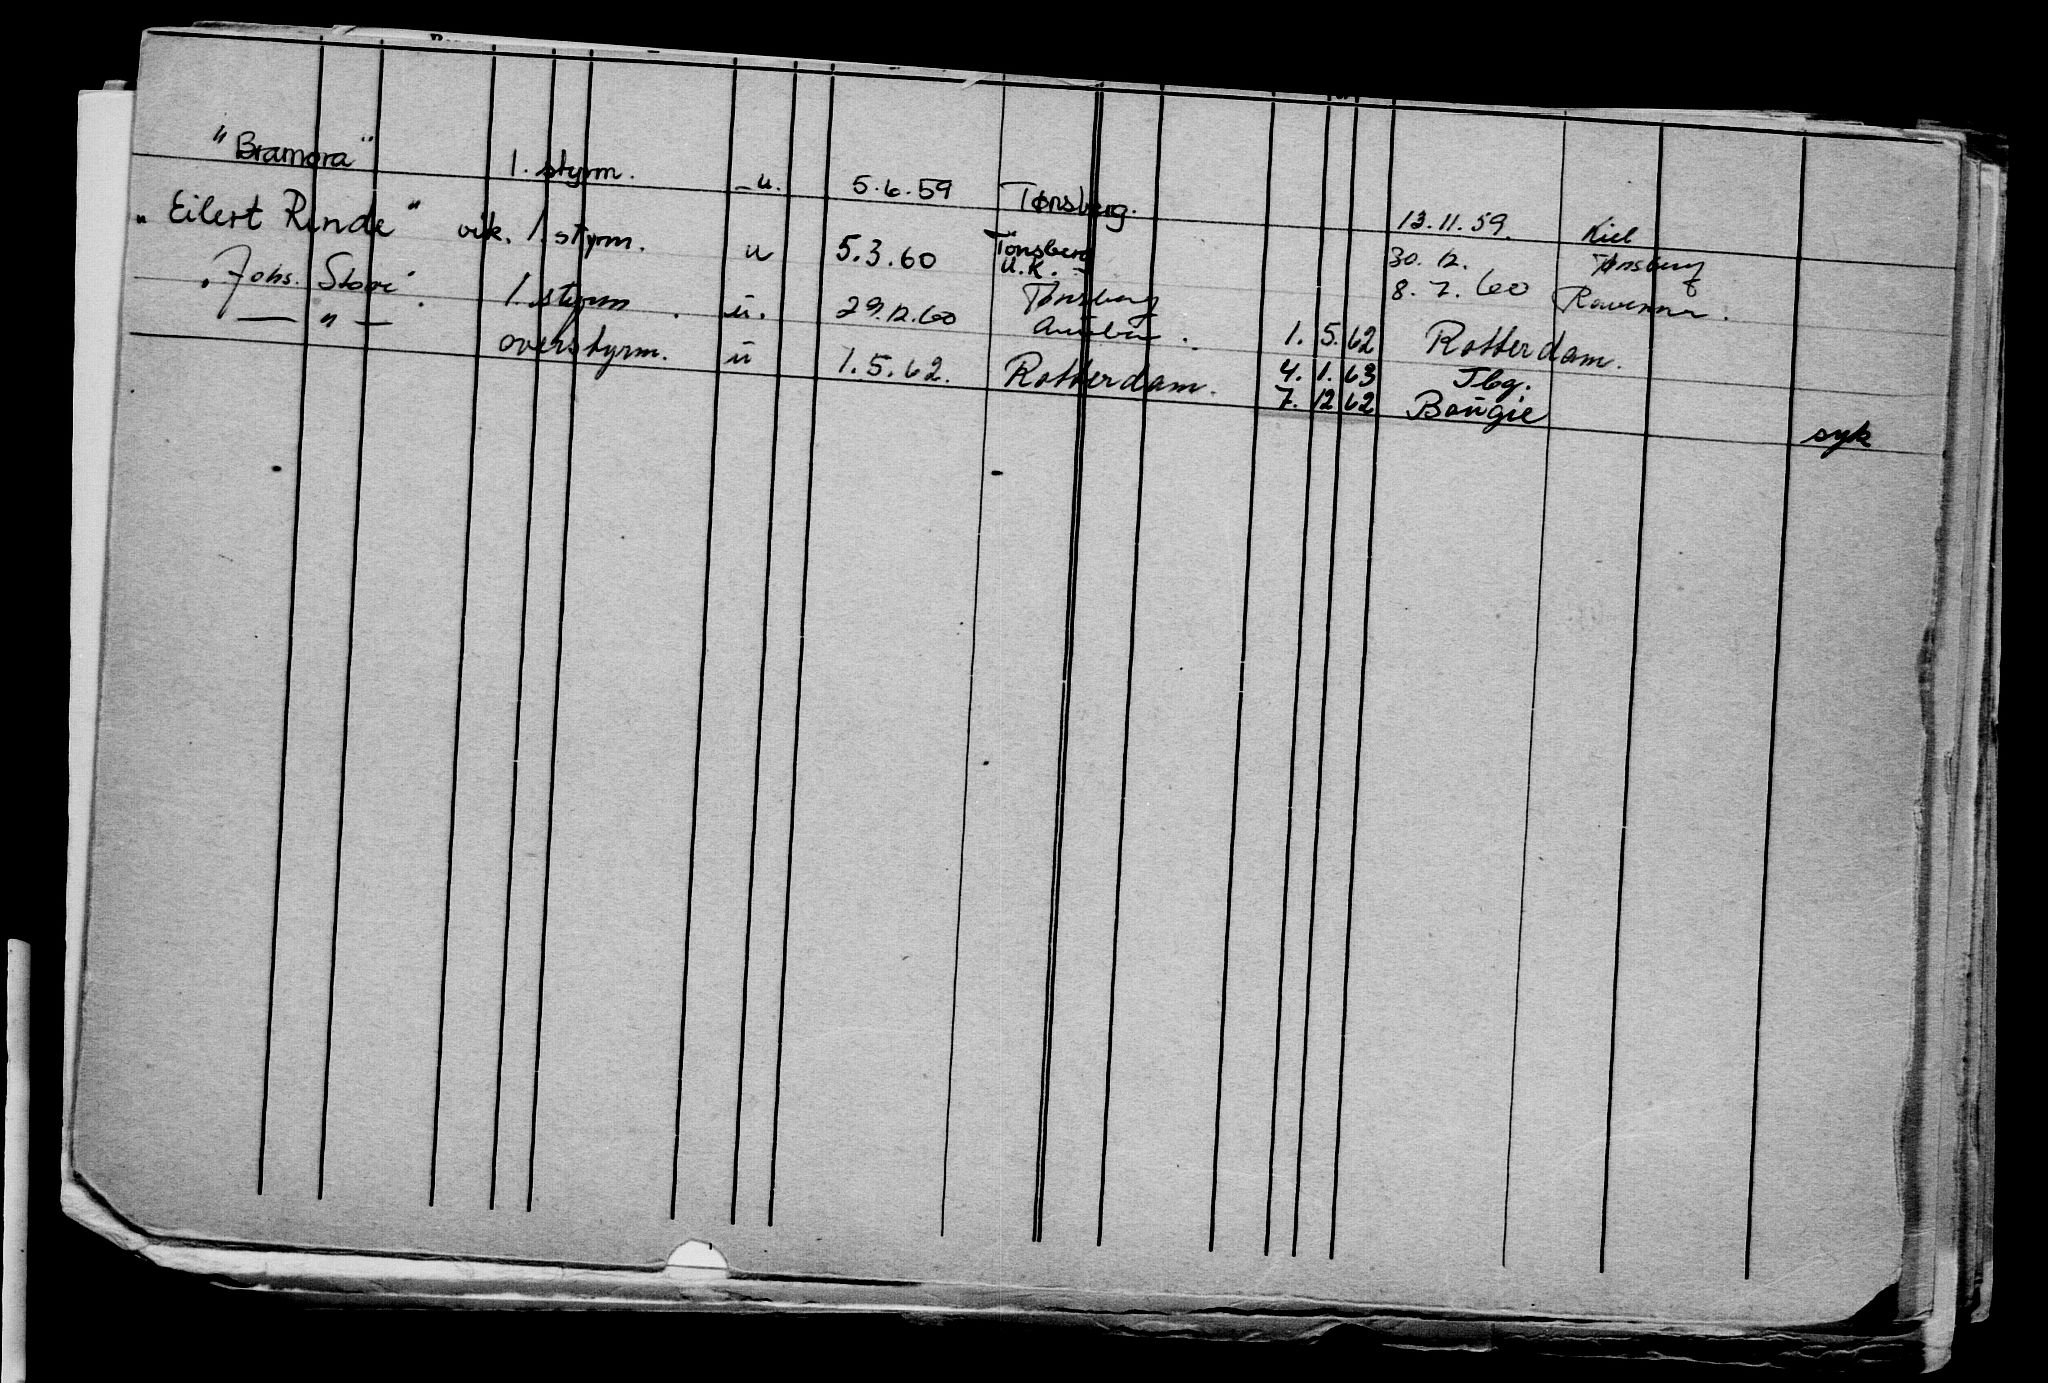 "Bramora" 1. styrm. - u. 5.6.59 Tønsberg. 13.11.59. Kiel
"Eilert Rinde" vik. 1. styrm. u 5.3.60 Tönsberg U.K. 30. 12. Tønsberg
8. 7. 60 Ravenna.
"Johs. Stove". 1. styrm. u. 29.12.60 Tønsberg 1. 5. 62 Rotterdam.
— " — overstyrm. u 1.5.62. Rotterdam. 4. 1. 63 Tbg.
7. 12 62 Bougie syk